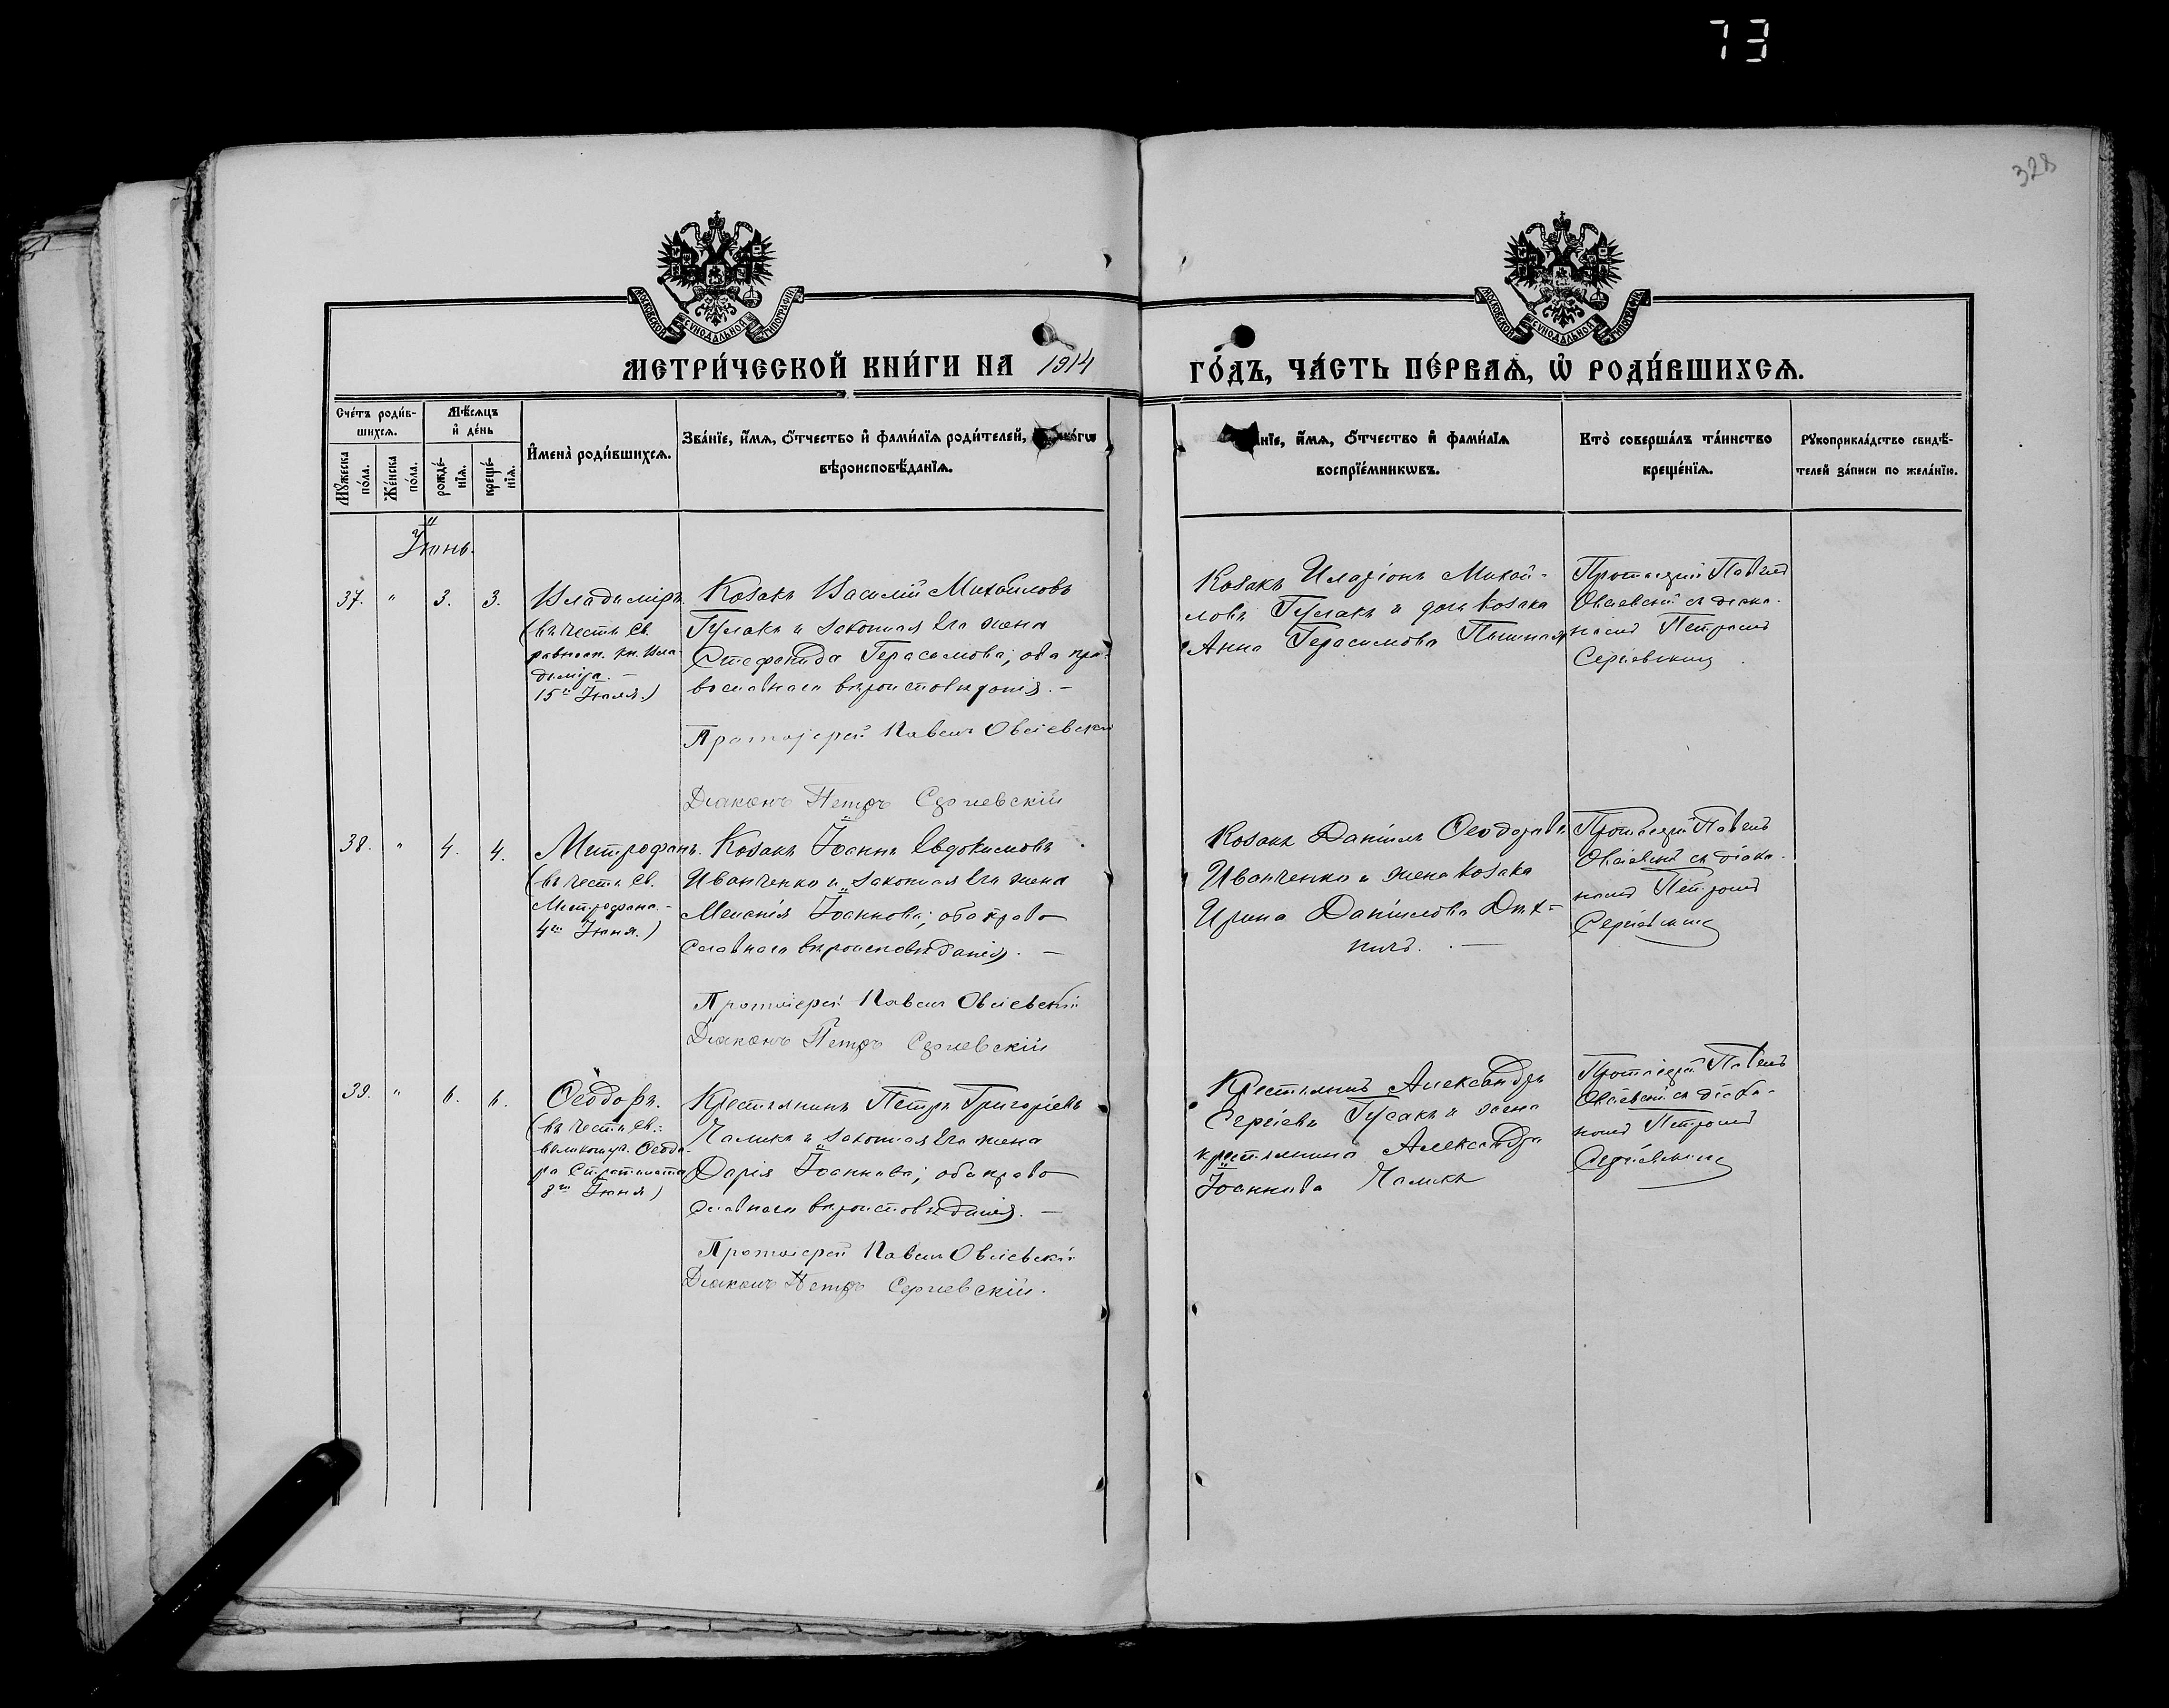 73
328
МОСКОВСКОЙ СѴНОДАЛЬНОЙ ТИПОГРАФІИ
МОСКОВСКОЙ СѴНОДАЛЬНОЙ ТИПОГРАФІИ
МЕТРИ́ЧЕСКОЙ КНИ́ГИ НА 1914
ГО́ДЪ, ЧА́СТЬ ПЕ́РВАѦ, Ѡ҆ РОДИ́ВШИХСѦ.
Сче́тъ роди́в-
шихсѧ.
Мѣ́сѧцъ
и҆ де́нь
Мꙋ́жеска
по́ла.
Же́нска
по́ла.
рожде́-
нїѧ.
креще́-
нїѧ.
И҆мена̀ роди́вшихсѧ.
Зва́нїе, и҆́мѧ, ѻ҆́тчество и҆ фами́лїѧ роди́телей,
вѣроисповѣ́данїѧ.
нїе, и҆́мѧ, ѻ҆́тчество и҆ фами́лїѧ
воспрїе́мникѡвъ.
Кто̀ соверша́лъ та́инство
креще́нїѧ.
Рꙋкоприкла́дство свидѣ́-
телей за́писи по жела́нїю.
Іюнь.
37. " 3. 3.
Владиміръ.
(въ честь Св.
равноап. кн. Вла-
диміра. —
15го Іюля.)
Козакъ Василій Михайловъ
Гусакъ и законная его жена
Стефанида Герасимова; оба пра-
вославнаго вѣроисповѣданія. —
Протоіерей Павелъ Овсіевскій
Діаконъ Петръ Сергіевскій
Козакъ Иларіонъ Михай-
ловъ Гусакъ и дочь козака
Анна Герасимова
Протоіерей Павелъ
Овсіевскій съ діако-
номъ Петромъ
Сергіевскимъ
38. " 4. 4.
Митрофанъ.
(въ честь Св.
Митрофана. -
4го Іюня.)
Козакъ Іоаннъ Евдокимовъ
Иванченко и законная его жена
Меланія Іоаннова; оба право-
славнаго вѣроисповѣданія. —
Протоіерей Павелъ Овсіевскій
Діаконъ Петръ Сергіевскій
Козакъ Даніилъ Ѳеодоровъ
Иванченко и жена козака
Ирина Даніилова
Протоіерей Павелъ
Овсіевскій съ діако-
номъ Петромъ
Сергіевскимъ
39. " 6. 6.
Ѳеодоръ.
(въ честь Св.
великомуч. Ѳеодо-
ра Стратилата
8го Іюня)
Крестьянинъ Петръ Григоріевъ
Чалыкъ и законная его жена
Дарія Іоаннова; оба право-
славнаго вѣроисповѣданія. —
Протоіерей Павелъ Овсіевскій
Діаконъ Петръ Сергіевскій.
Крестьянинъ Александръ
Сергіевъ Гусакъ и жена
крестьянина Александра
Іоаннова Чалыкъ
Протоіерей Павелъ
Овсіевскій съ діако-
номъ Петромъ
Сергіевскимъ